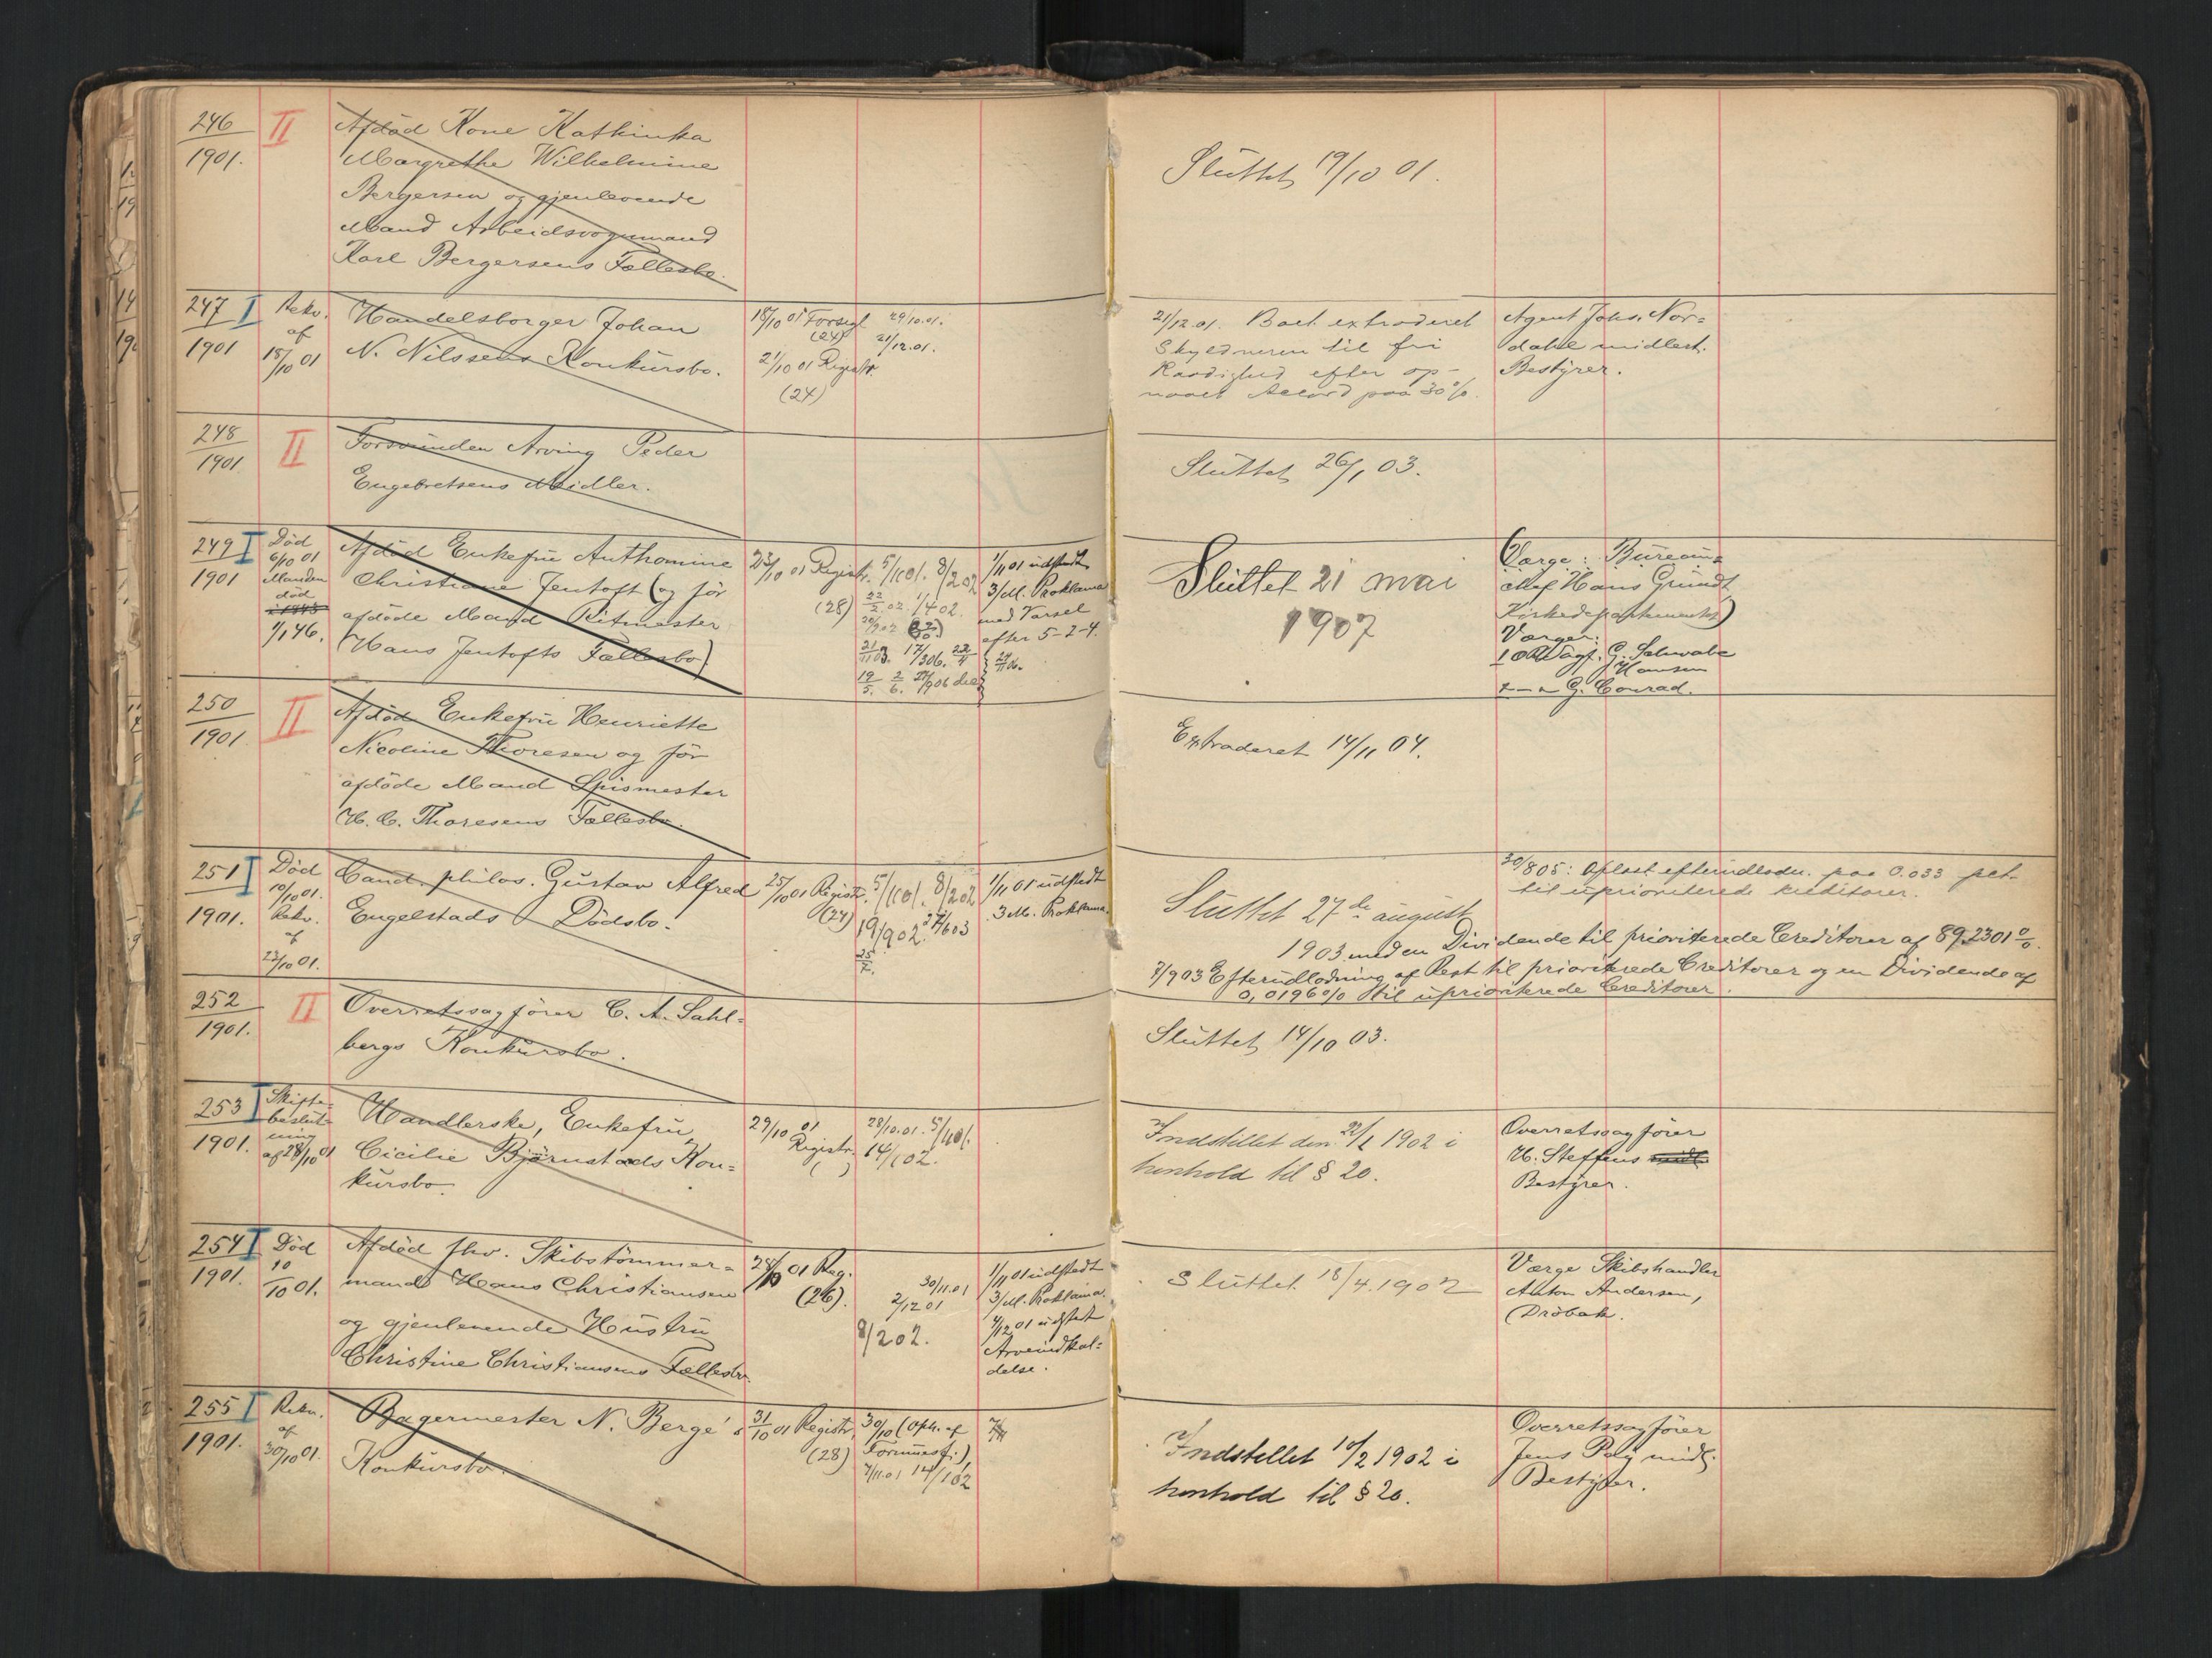 246
1901.
II
Afdød Kone Kathinka
Margrethe Wilhelmine
Bergersen og gjenlevende
Mand Arbeidsvognmand
Karl Bergersens Fællesbo.
Sluttet 19/10 01.
247 I
1901
Rekv.
af
18/10 01
Handelsborger Johan
N. Nilssens Konkursbo.
18/10 01 Forsegl.
(24)
21/10 01 Registr.
(24)
29/10.01.
21/12.01.
21/12.01. Boet extraderet
Skyldneren til fri
Raadighed efter op-
naaet Accord paa 30%.
Agent Johs. Nor=
dahl midlert.
Bestyrer.
248
1901
II
Forsvunden Arving Peder
Engebretsens Midler.
Sluttet 26/1 03.
249 I
1901
Død
6/10 01
Manden
død
i 1845
1/1 46.
Afdød Enkefru Anthomine
Christiane Jentoft (og før
afdøde Mand Ritmester
Hans Jentofts Fællesbo)
23/10 01 Registr.
(28)
5/11 01. 8/2 02
22/2 02. 1/4 02.
21/11 03. 17/3 06. 22/4
19/5. 2/6.
1/11 01 udstedt
3/M. Proklama
med Varsel
efter 5-2-4.
Sluttet 21 mai
1907
(Værge: Bureau=
chef Hans Grundt,
Kirkedepartementet)
Værger:
1 O.R.Sagf. G. Schwabe
Hansen
2 — " G. Conrad.
250
1901
II
Afdød Enkefru Henriette
Nicoline Thoresen og før
afdøde Mand Spismester
H. C. Thoresens Fællesbo.
Extraderet 14/11 04.
251 I
1901.
Død
10/10 01.
Rekv.
af
23/10 01.
Cand. philos. Gustav Alfred
Engelstads Dødsbo.
25/10 01 Registr.
(24)
5/11 01. 8/2 02
19/9 02. 27/6 03
25/7.
1/11 01 udstedt
3 M. Proklama.
30/8 05: Opløst efterudlodn. paa 0.033 pct.
til uprioriterede kreditorer.
Sluttet 27de august
1903 med en Dividende til prioriterede Creditorer af 89,2301 %.
7/9 03 Efterudlodning af Rest til prioriterede Creditorer og en Dividende af
0,0196 % til uprioriterede Creditorer.
252
1901.
II
Overretssagfører C. A. Sahl=
bergs Konkursbo.
Sluttet 14/10 03.
253 I
1901.
Skifte=
beslut=
ning
af 28/10 01
Handlerske, Enkefru
Cicilie Bjørnstads Kon=
kursbo.
29/10 01
Registr.
( )
28/10.01. 5/11 01.
14/1 02.
Indstillet den 21/1 1902 i
henhold til § 20.
Overretssagfører
H. Steffens midl.
Bestyrer.
254 I
1901.
Død
10/10 01.
Afdød fhv. Skibstømmer=
mand Hans Christiansen
og gjenlevende Hustru
Christine Christiansens Fællesbo.
28/10 01 Reg.
(26).
30/11.01
2/12 01
8/2 02.
1/11 01 udstedt
3/M. Proklama.
4/12 01 udstedt
Arveindkal=
delse.
Sluttet 18/4 1902
Værge Skibshandler
Anton Andersen,
Drøbak.
255 I
1901.
Rekv.
af
30/10 01.
Bagermester N. Berge's
Konkursbo.
31/10 01 Registr.
(28)
30/10 (Oph. af
Formuesf.)
7/11.01 14/1 02
Indstillet 10/2 1902 i
henhold til § 20.
Overretssagfører
Jens Pay midl.
Bestyrer.